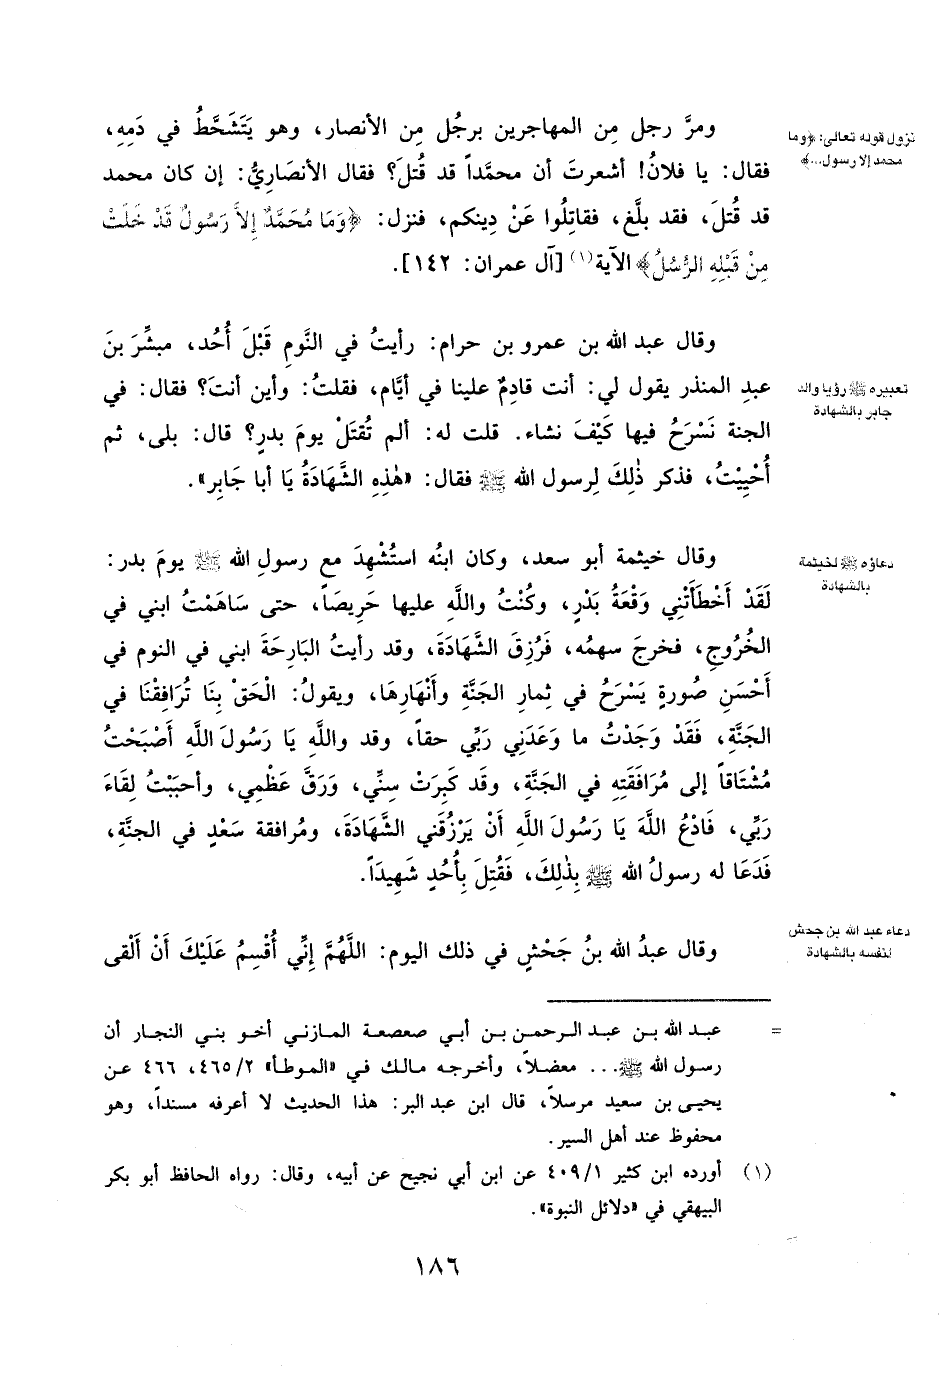 ومرَّ رجل مِن المهاجرين برجُل مِن الأنصار، وهو يَتَشَحَّطُ في دَمِهِ،
نزول قوله تعالى: ﴿وما
محمد إلا رسول...﴾
فقال: يا فلانُ! أشعرتَ أن محمَّداً قد قُتلَ؟ فقال الأنصَارِيُّ: إن كان محمد
قد قُتلَ، فقد بلَّغ، فقاتِلُوا عَنْ دِينكم، فنزل: ﴿وَمَا مُحَمَّدٌ إلاَّ رَسُولٌ قَدْ خَلَتْ
مِنْ قَبْلِهِ الرُّسُلُ﴾ الآية(١) [آل عمران: ١٤٢].
وقال عبد الله بن عمرو بن حرام: رأيتُ في النَّومِ قَبْلَ أُحُد، مبشِّرَ بنَ
تعبيره ﷺ رؤيا والد
جابر بالشهادة
عبدِ المنذر يقول لي: أنت قادِمٌ علينا في أيَّام، فقلتُ: وأين أنتَ؟ فقال: في
الجنة نَسْرَحُ فيها كَيْفَ نشاء. قلت له: ألم تُقتَلْ يومَ بدرٍ؟ قال: بلى، ثم
أُحْيِيْتُ، فذكر ذٰلِكَ لِرسول الله ﷺ فقال: «هٰذِهِ الشَّهَادَةُ يَا أبا جَابِر».
وقال خيثمة أبو سعد، وكان ابنُه استُشْهِدَ مع رسولِ الله ﷺ يومَ بدر:
دعاؤه ﷺ لخيثمة
بالشهادة
لَقَدْ أَخْطَأَتْنِي وَقْعَةُ بَدْرٍ، وكُنْتُ واللَّهِ عليها حَرِيصَاً، حتى سَاهَمْتُ ابني في
الخُرُوجِ، فخرجَ سهمُه، فَرُزِقَ الشَّهَادَةَ، وقد رأيتُ البَارِحَةَ ابني في النوم في
أَحْسَنِ صُورةٍ يَسْرَحُ في ثِمارِ الجَنَّةِ وأَنْهَارِهَا، ويقولُ: الْحَقْ بِنَا تُرَافِقْنَا في
الجَنَّةِ، فَقَدْ وَجَدْتُ ما وَعَدَنِي رَبِّي حقاً، وقد واللَّهِ يَا رَسُولَ اللَّهِ أَصْبَحْتُ
مُشْتَاقاً إلى مُرَافَقَتِهِ في الجَنَّةِ، وقَد كَبِرَتْ سِنِّي، وَرَقَّ عَظْمِي، وأحبَبْتُ لِقَاءَ
رَبِّي، فَادْعُ اللَّهَ يَا رَسُولَ اللَّهِ أَنْ يَرْزُقَني الشَّهَادَةَ، ومُرافقة سَعْدٍ في الجنَّةِ،
فَدَعَا له رسولُ الله ﷺ بِذٰلِكَ، فَقُتِلَ بِأُحُدٍ شَهِيدَاً.
وقال عبدُ الله بنُ جَحْشٍ في ذلك اليوم: اللَّهُمَّ إنِّي أُقْسِمُ عَلَيْكَ أَنْ أَلْقى
دعاء عبد الله بن جحش
لنفسه بالشهادة
= عبد الله بن عبد الرحمن بن أبي صعصعة المازني أخو بني النجار أن
رسول الله ﷺ... معضلاً، وأخرجه مالك في «الموطأ» ٤٦٥/٢، ٤٦٦ عن
يحيى بن سعيد مرسلاً، قال ابن عبد البر: هذا الحديث لا أعرفه مسنداً، وهو
محفوظ عند أهل السير.
(١) أورده ابن كثير ٤٠٩/١ عن ابن أبي نجيح عن أبيه، وقال: رواه الحافظ أبو بكر
البيهقي في «دلائل النبوة».
١٨٦